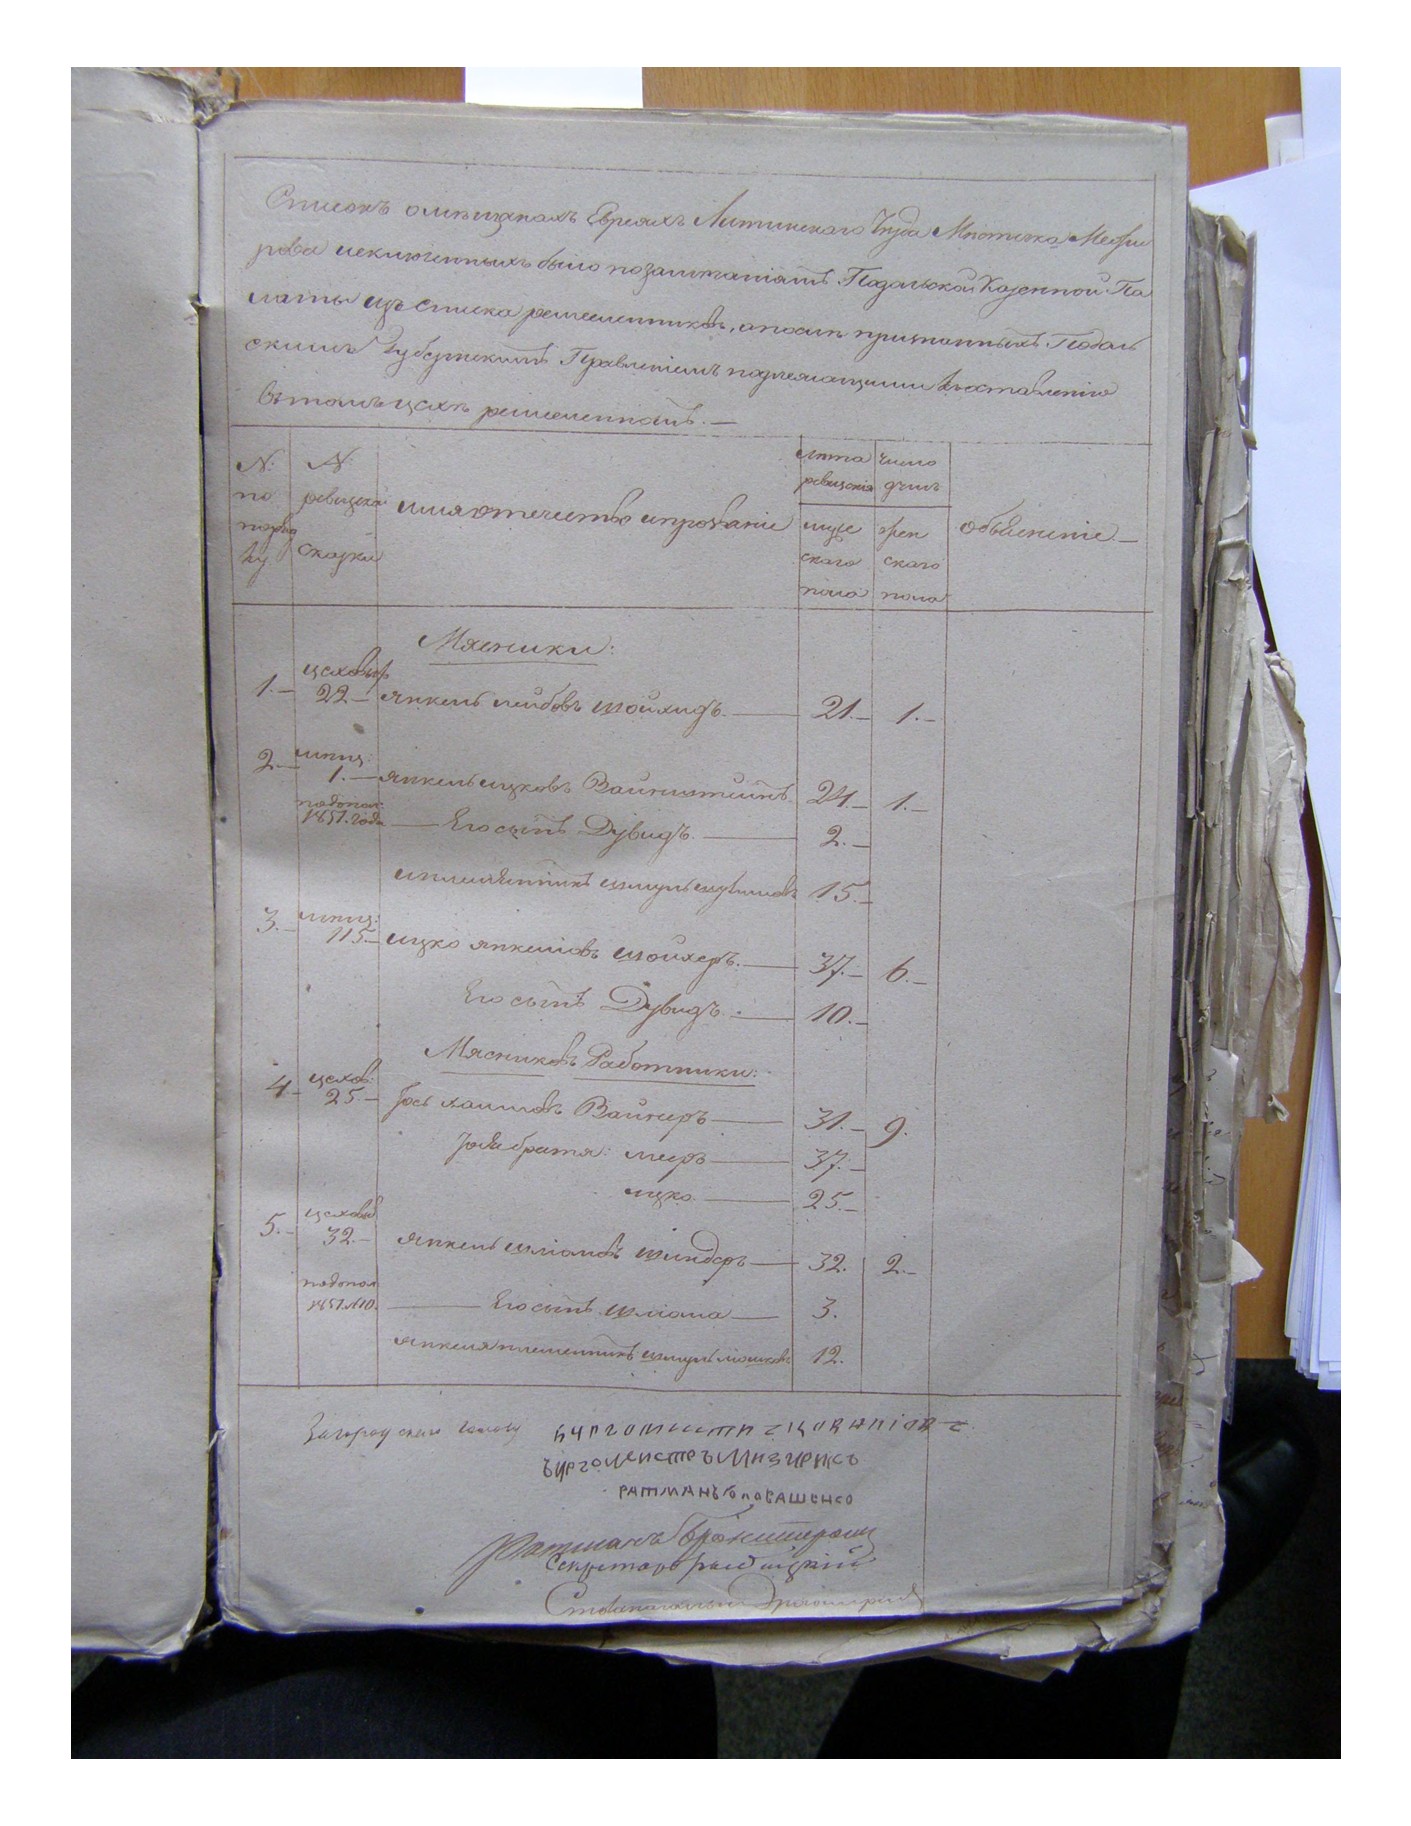 Списокъ о мѣщанахъ Евреяхъ Литинскаго Уѣзда Мѣстечка Межи
рова исключенныхъ было по Подольской Казенной Па
латы изъ списка ремесленниковъ, а послѣ признанныхъ Подоль
скимъ Губернскимъ Правленіемъ подлежащими къ оставленію
въ томъ цехѣ ремесленномъ. —
N: по порядку
N: ревизской сказки
имя отечество и прозваніе
лѣта ревизскія мужескаго пола
число душъ женскаго пола
объясненіе. —
Мясники:
1. — цеховой 22 — Янкель Лейбовъ Шойхидъ. — 21. — 1. —
2. — мѣщ: 1. — Янкель Ицковъ Вайнштейнъ 24. — 1. —
по допол: 1851. года — Его сынъ Дувидъ. — 2. —
и племянникъ Шмуль 15. —
3. — мѣщ: 115. — Ицко Янкелювъ Шойхеръ. — 37. — 6. —
Его сынъ Дувидъ. — 10. —
Мясниковъ Работники:
4. — цехов: 25. — Іось Хаимовъ Вайнеръ — 31. — 9.
братя: Меер — 37. —
Ицко. — 25. —
5. — цеховой 32. — Янкель Шліомовъ — 32. 2. —
по допол 1851. — Его сынъ Шліома — 3.
Янкеля племенникъ Шмуль Мошковъ 12.
голову
бургомистр
бургомистръ Мизирисъ
ратманъ
Ратманъ
Секретарь